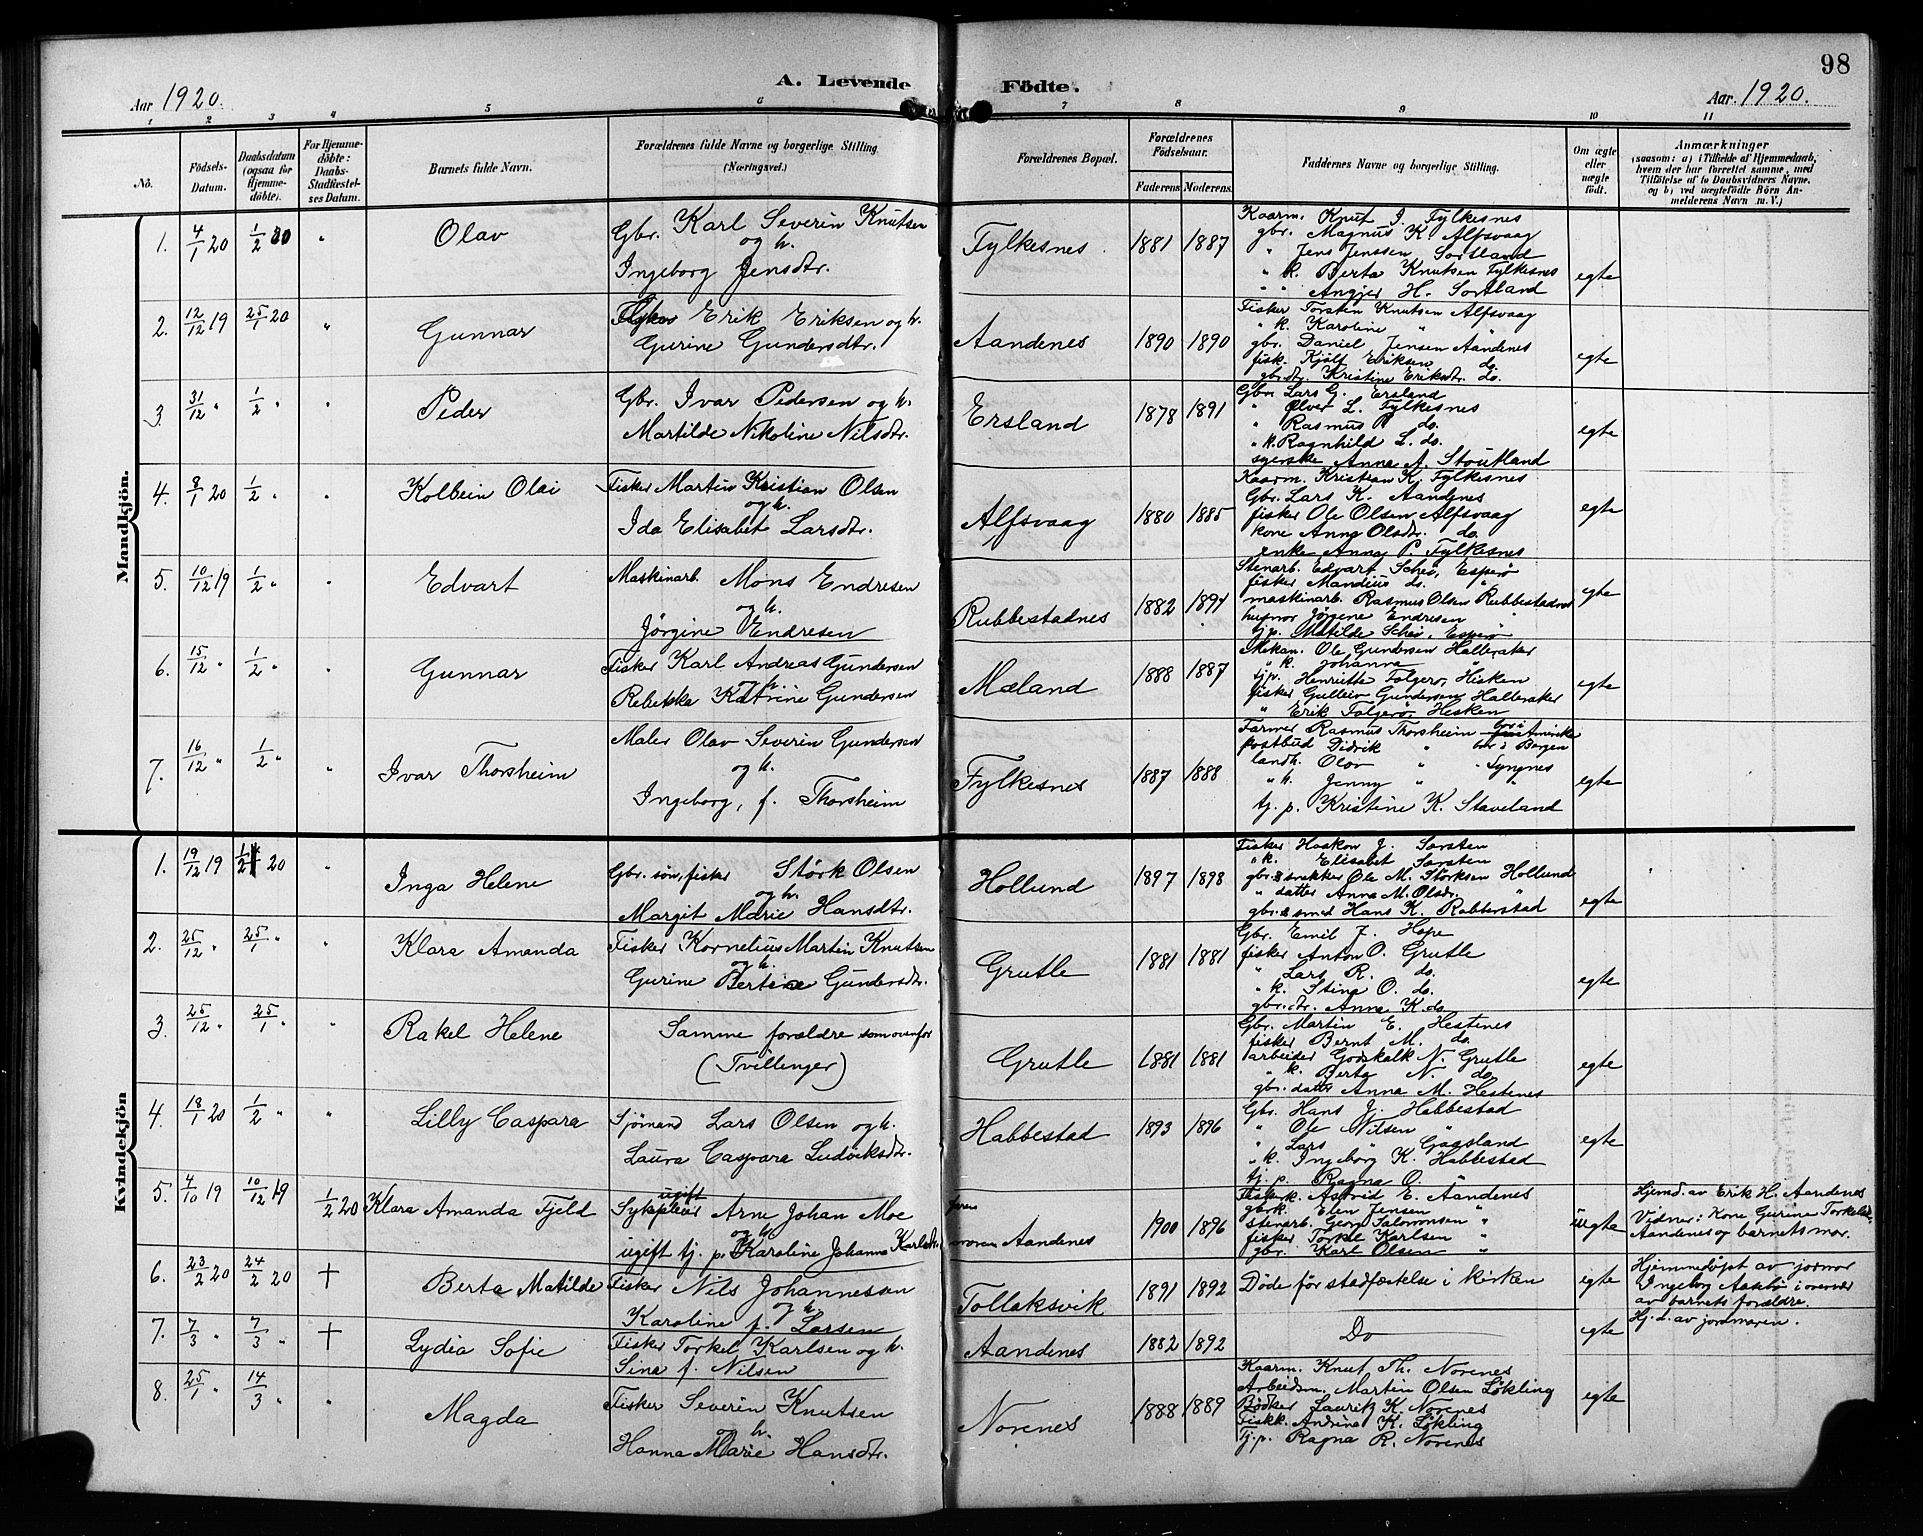 98
A. Levende Födte.
Aar 1920.
Aar 1920.
1 2 3 4 5 6 7 8 9 10 11
No.
Födsels-Datum.
Daabsdatum (ogsaa for Hjemmedöbte).
For Hjemmedöbte: Daabs-Stadfæstelses Datum.
Barnets fulde Navn.
Forældrenes fulde Navne og borgerlige Stilling. (Næringsvei.)
Forældrenes Bopæl.
Forældrenes Födselsaar.
Faderens. Moderens.
Faddernes Navne og borgerlige Stilling.
Om ægte eller uægte födt.
Anmærkninger
(saasom: a) i Tilfælde af Hjemmedaab, hvem der har forrettet samme, med Tilföielse af to Daabsvidners Navne, og b) ved uægtefödte Börn Anmelderens Navn m. V.)
Mandkjön.
1. 4/1 20 1/2 20 " Olav
Gbr. Karl Severin Knutsen
og h.
Ingeborg Jensdtr.
Fylkesnes 1881 1887
Kaarm. Knut I. Fylkesnes
gbr. Magnus K. Alfsvaag
" Jens Jenssen Sortland
" k. Berta Knutsen Fylkesnes
" " Angjer H. Sortland
egte
2. 12/12 19 25/1 20 " Gunnar
Fisker Erik Eriksen og h.
Gurine Gundersdtr.
Aandenes 1890 1890
Fisker Torsten Knutsen Alfsvaag
" k. Karoline "
gbr. Daniel Jensen Aandenes
fisk. Kjölf Eriksen do.
gbr.dtr. Kristine Eriksdtr. do.
egte
3. 31/12 " 1/2 " " Peder
Gbr. Ivar Pedersen og h.
Martilde Nikoline Nilsdtr.
Ersland 1878 1891
Gbr. Lars G. Ersland
" Olver L. Fylkesnes
" Rasmus P. do.
" k. Ragnhild L. do.
syerske Anna A. Stoutland
egte
4. 8/1 20 1/2 " " Kolbein Olai
Fisker Martin Kristian Olsen
og h.
Ida Elisabet Larsdtr.
Alfsvaag 1880 1885
Kaarm. Kristian K. Fylkesnes
Gbr. Lars K. Aandenes
fisker Ole Olsen Alfsvaag
kone Anna Olsdtr. do.
enke Anna P. Fylkesnes
egte
5. 10/12 19 1/2 " " Edvart
Maskinarb. Mons Endresen
og h.
Jörgine Endresen
Rubbestadnes 1882 1891
Stenarb. Edvart Schei, Esperö
fisker Mandius do. "
maskinarb. Rasmus Olsen Rubbestadnes
husmor Jörgene Endresen "
tj.p. Matilde Schei, Esperö
egte
6. 15/12 " 1/2 " " Gunnar
Fisker Karl Andreas Gundersen
og h.
Rebekka Katrine Gundersen
Mæland 1888 1887
Mekan. Ole Gundersen Halleraker
" k. Johanna "
tj.p. Henriette Folgerö, Hisken
fisker Gulleiv Gundersen Halleraker
" Erik Folgerö, Hesken
egte
7. 16/12 " 1/2 " " Ivar Thorsheim
Maler Olav Severin Gundersen
og h.
Ingeborg, f. Thorsheim
Fylkesnes 1887 1888
Farmer Rasmus Thorsheim bor i Amerika
postbud Didrik " bor i Bergen
landh. Olav "
" k. Jenny " "
tj. p. Kristine K. Staveland
egte
Kvindekjön
1. 19/12 19 1/2 20 " Inga Helene
Gbr. sön, fisker Störk Olsen
og h.
Margit Marie Hansdtr.
Hollund 1897 1898
Fisker Haakon J. Sarsten
" k. Elisabet Sarsten
gbr. & snekker Ole M. Störksen Hollund
" datter Anna M. Olsdtr. "
gbr. & smed Hans K. Rabberstad
egte
2. 25/12 " 25/1 " " Klara Amanda
Fisker Kornelius Martin Knutsen
og h.
Gurine Bertine Gundersdtr.
Grutle 1881 1881
Gbr. Emil J. Hope
fisker Anton O. Grutle
" Lars R. do.
" k. Stina O. do.
gbr. dtr. Anna K. do.
egte
3. 25/12 " 25/1 " " Rakel Helene
Samme forældre som ovenfor
(Tvillinger)
Grutle 1881 1881
Gbr. Martin E. Hestenes
fisker Bernt M. do.
arbeider Godskalk N. Grutle
" k. Berta N. do.
gbr. datter Anna M. Hestenes
egte
4. 18/1 20 1/2 " " Lilly Caspara
Sjömand Lars Olsen og h.
Laura Caspara Ludviksdtr.
Habbestad 1893 1896
Gbr. Hans J. Habbestad
" Ole Nilsen "
" Lars " Gaasland
" k. Ingeborg K. Habbestad
tj. p. Ragna O. "
egte
5. 4/10 19 10/12 19 1/2 20 Klara Amanda Fjeld
ugift
Sykepleier Arne Johan Moe
og
ugift tj. p. Karoline Johanna Karlsdtr.
moren Aandenes 1900 1896
Fiskerk. Astrid E. Aandenes
gbrk. Elen Jensen "
stenarb. Georg Salomonsen "
fisker Torkel Karlsen "
gbr. Karl Olsen "
uegte
Hjemd. av Erik H. Aandenes
Vidner: Kone Gurine Torkels.
Aandenes og barnets mor.
6. 23/2 20 24/2 20 † Berta Matilde
Fisker Nils Johannessen
og h.
Karoline f. Larsen
Tollaksvik 1891 1892
Döde för stadfæstelse i kirken
egte
Hjemmedöpt av jormor
Ingeborg Aakkö i overvær
av barnets forældre.
7. 7/3 " 7/3 " † Lydia Sofie
Fisker Torkel Karlsen og h.
Sina f. Nilsen
Aandenes 1882 1892
Do
egte
Hj. d. av jordmoren.
8. 25/1 " 14/3 " " Magda
Fisker Severin Knutsen
og h.
Hanna Marie Hansdtr.
Norenes 1888 1889
Kaarm. Knut Th. Norenes
Arbeidsm. Martin Olsen Lökling
Bödker Lauritz K. Norenes
Fiskk. Andrina K. Lökling
Tj.p. Ragna R. Norenes
egte